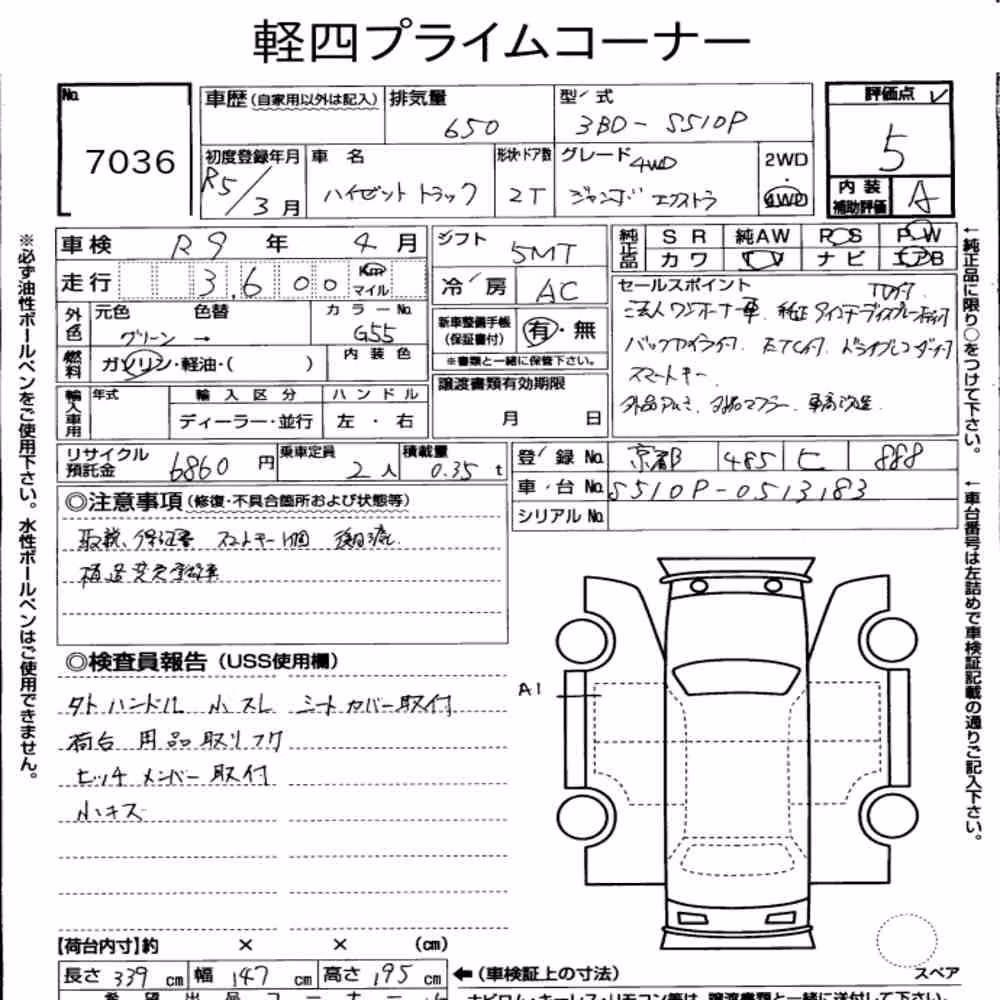 軽四プライムコーナー
No. 7036
車歴 (自家用以外は記入)
排気量 650
型 式 3BD-S510P
初度登録年月 R5/3月
車 名 ハイゼット トラック
形状・ドア数 2T
グレード 4WD ジャンボ エクストラ
2WD・4WD
評価点 5
内装補助評価 A
車検 R9年 4月
走行 3,600 Km マイル
シフト 5MT
冷 房 AC
純正品 SR 純AW PS PW
カワ TV ナビ エアB
外色 元色 グリーン → 色替 カラーNo. G55
燃料 ガソリン・軽油・( ) 内装色
新車整備手帳 (保証書付) 有・無
※書類と一緒に保管下さい。
セールスポイント
法人ワンオーナー車
バックカメラ付 ETC付 ドライブレコーダー付
スマートキー
外品アルミ 外品マフラー 車高改造
輸入車用 年式 輸入区分 ディーラー・並行 ハンドル 左・右
譲渡書類有効期限 月 日
リサイクル預託金 6860円
乗車定員 2人
積載量 0.35t
登 録 No. 京都 485 ヒ 888
車 台 No. S510P-0513183
シリアルNo.
◎注意事項 (修復・不具合箇所および状態等)
取説、保証書 スマートキー1個 後日流
構造変更登録車
◎検査員報告 (USS使用欄)
タトハンドル 小スレ シートカバー取付
荷台 用品取リフク
ヒッチメンバー取付
小キズ
A1
スペア
【荷台内寸】約 × × (cm)
長さ 339 cm 幅 147 cm 高さ 195 cm ←(車検証上の寸法)
希望出品コーナー
※必ず油性ボールペンをご使用下さい。水性ボールペンはご使用できません。
←純正品に限り○をつけて下さい。
←車台番号は左詰めで車検証記載の通りご記入下さい。